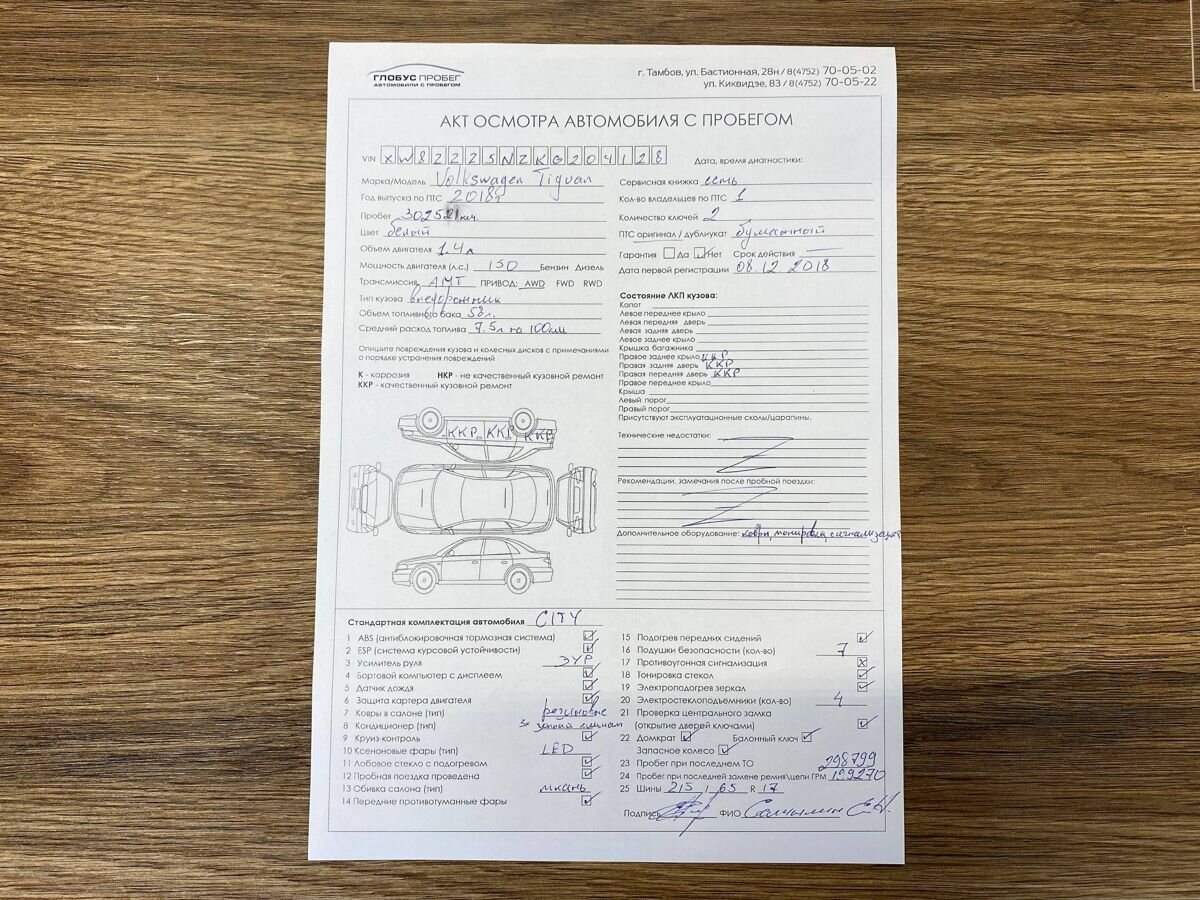 ГЛОБУС ПРОБЕГ
АВТОМОБИЛИ С ПРОБЕГОМ
г. Тамбов, ул. Бастионная, 28н / 8(4752) 70-05-02
ул. Киквидзе, 83 / 8(4752) 70-05-22
АКТ ОСМОТРА АВТОМОБИЛЯ С ПРОБЕГОМ
VIN XW8ZZZ5NZKG204128
Дата, время диагностики:
Марка/Модель Volkswagen Tiguan
Год выпуска по ПТС 2018г
Пробег 302521 км.
Цвет белый
Объем двигателя 1.4л
Мощность двигателя (л.с.) 150 Бензин Дизель
Трансмиссия АМТ ПРИВОД: AWD FWD RWD
Тип кузова внедорожник
Объем топливного бака 58л.
Средний расход топлива 7.5л на 100км
Опишите повреждения кузова и колесных дисков с примечаниями
о порядке устранения повреждений
К - каррозия НКР - не качественный кузовной ремонт
ККР - качественный кузовной ремонт
ККР ККР ККР
Сервисная книжка есть
Кол-во владельцев по ПТС 1
Количество ключей 2
ПТС оригинал / дубликат бумажный
Гарантия Да Нет Срок действия
Дата первой регистрации 08.12.2018
Состояние ЛКП кузова:
Капот
Левое переднее крыло
Левая передняя дверь
Левая задняя дверь
Левое заднее крыло
Крышка багажника
Правое заднее крыло ККР
Правая задняя дверь ККР
Правая передняя дверь ККР
Правое переднее крыло
Крыша
Левый порог
Правый порог
Присутствуют эксплуатационные сколы/царапины.
Технические недостатки:
Рекомендации, замечания после пробной поездки:
Дополнительное оборудование: ковры, тонировка, сигнализация
Стандартная комплектация автомобиля CITY
1 ABS (антиблокировочная тормозная система)
2 ESP (система курсовой устойчивости)
3 Усилитель руля ЭУР
4 Бортовой компьютер с дисплеем
5 Датчик дождя
6 Защита картера двигателя
7 Ковры в салоне (тип) резиновые
8 Кондиционер (тип) 3х зонный климат
9 Круиз-контроль
10 Ксеноновые фары (тип) LED
11 Лобовое стекло с подогревом
12 Пробная поездка проведена
13 Обивка салона (тип) ткань
14 Передние противотуманные фары
15 Подогрев передних сидений
16 Подушки безопасности (кол-во) 7
17 Противоугонная сигнализация
18 Тонировка стекол
19 Электроподогрев зеркал
20 Электростеклоподъемники (кол-во) 4
21 Проверка центрального замка
(открытие дверей ключами)
22 Домкрат Балонный ключ
Запасное колесо
23 Пробег при последнем ТО 298799
24 Пробег при последней замене ремня\цепи ГРМ 199270
25 Шины 215 / 65 R 17
Подпись ФИО